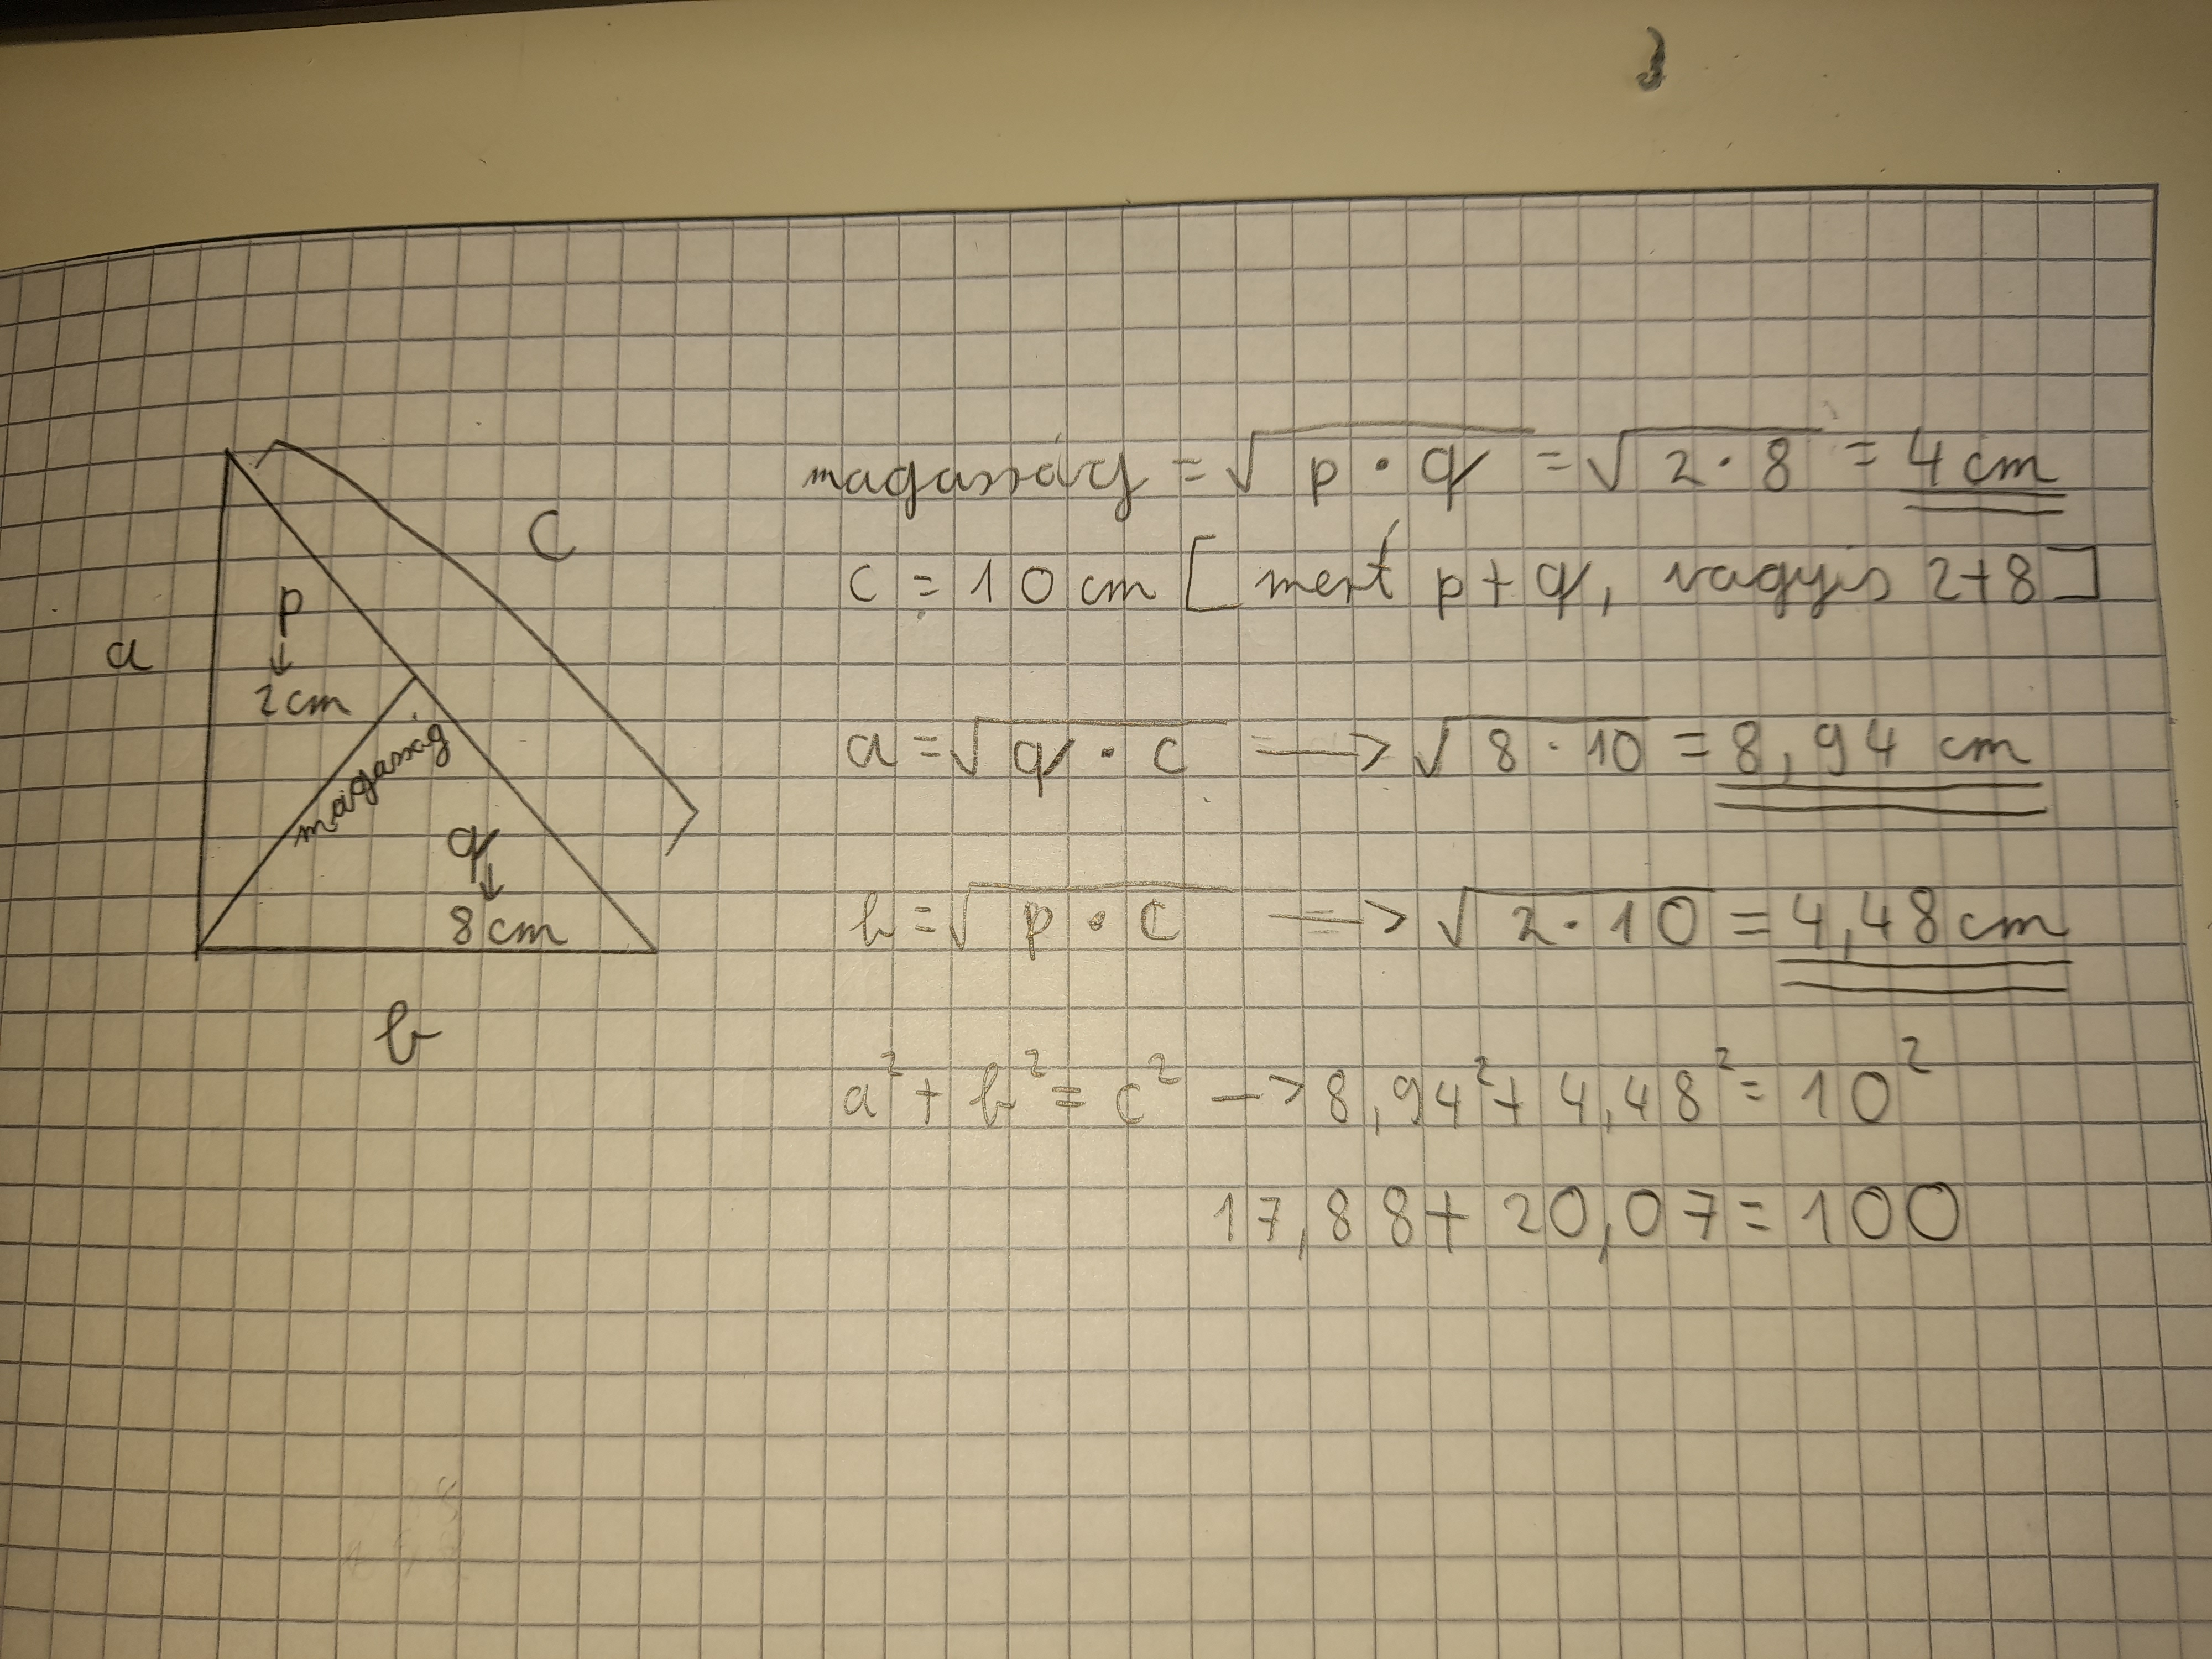 C
p
↓
2 cm
a
magasság
q
↓
8 cm
b
magasság = √p · q = √2 · 8 = 4 cm
c = 10 cm [mert p + q, vagyis 2+8]
a = √q · c => √8 · 10 = 8,94 cm
b = √p · c => √2 · 10 = 4,48 cm
a² + b² = c² -> 8,94² + 4,48² = 10²
17,88 + 20,07 = 100